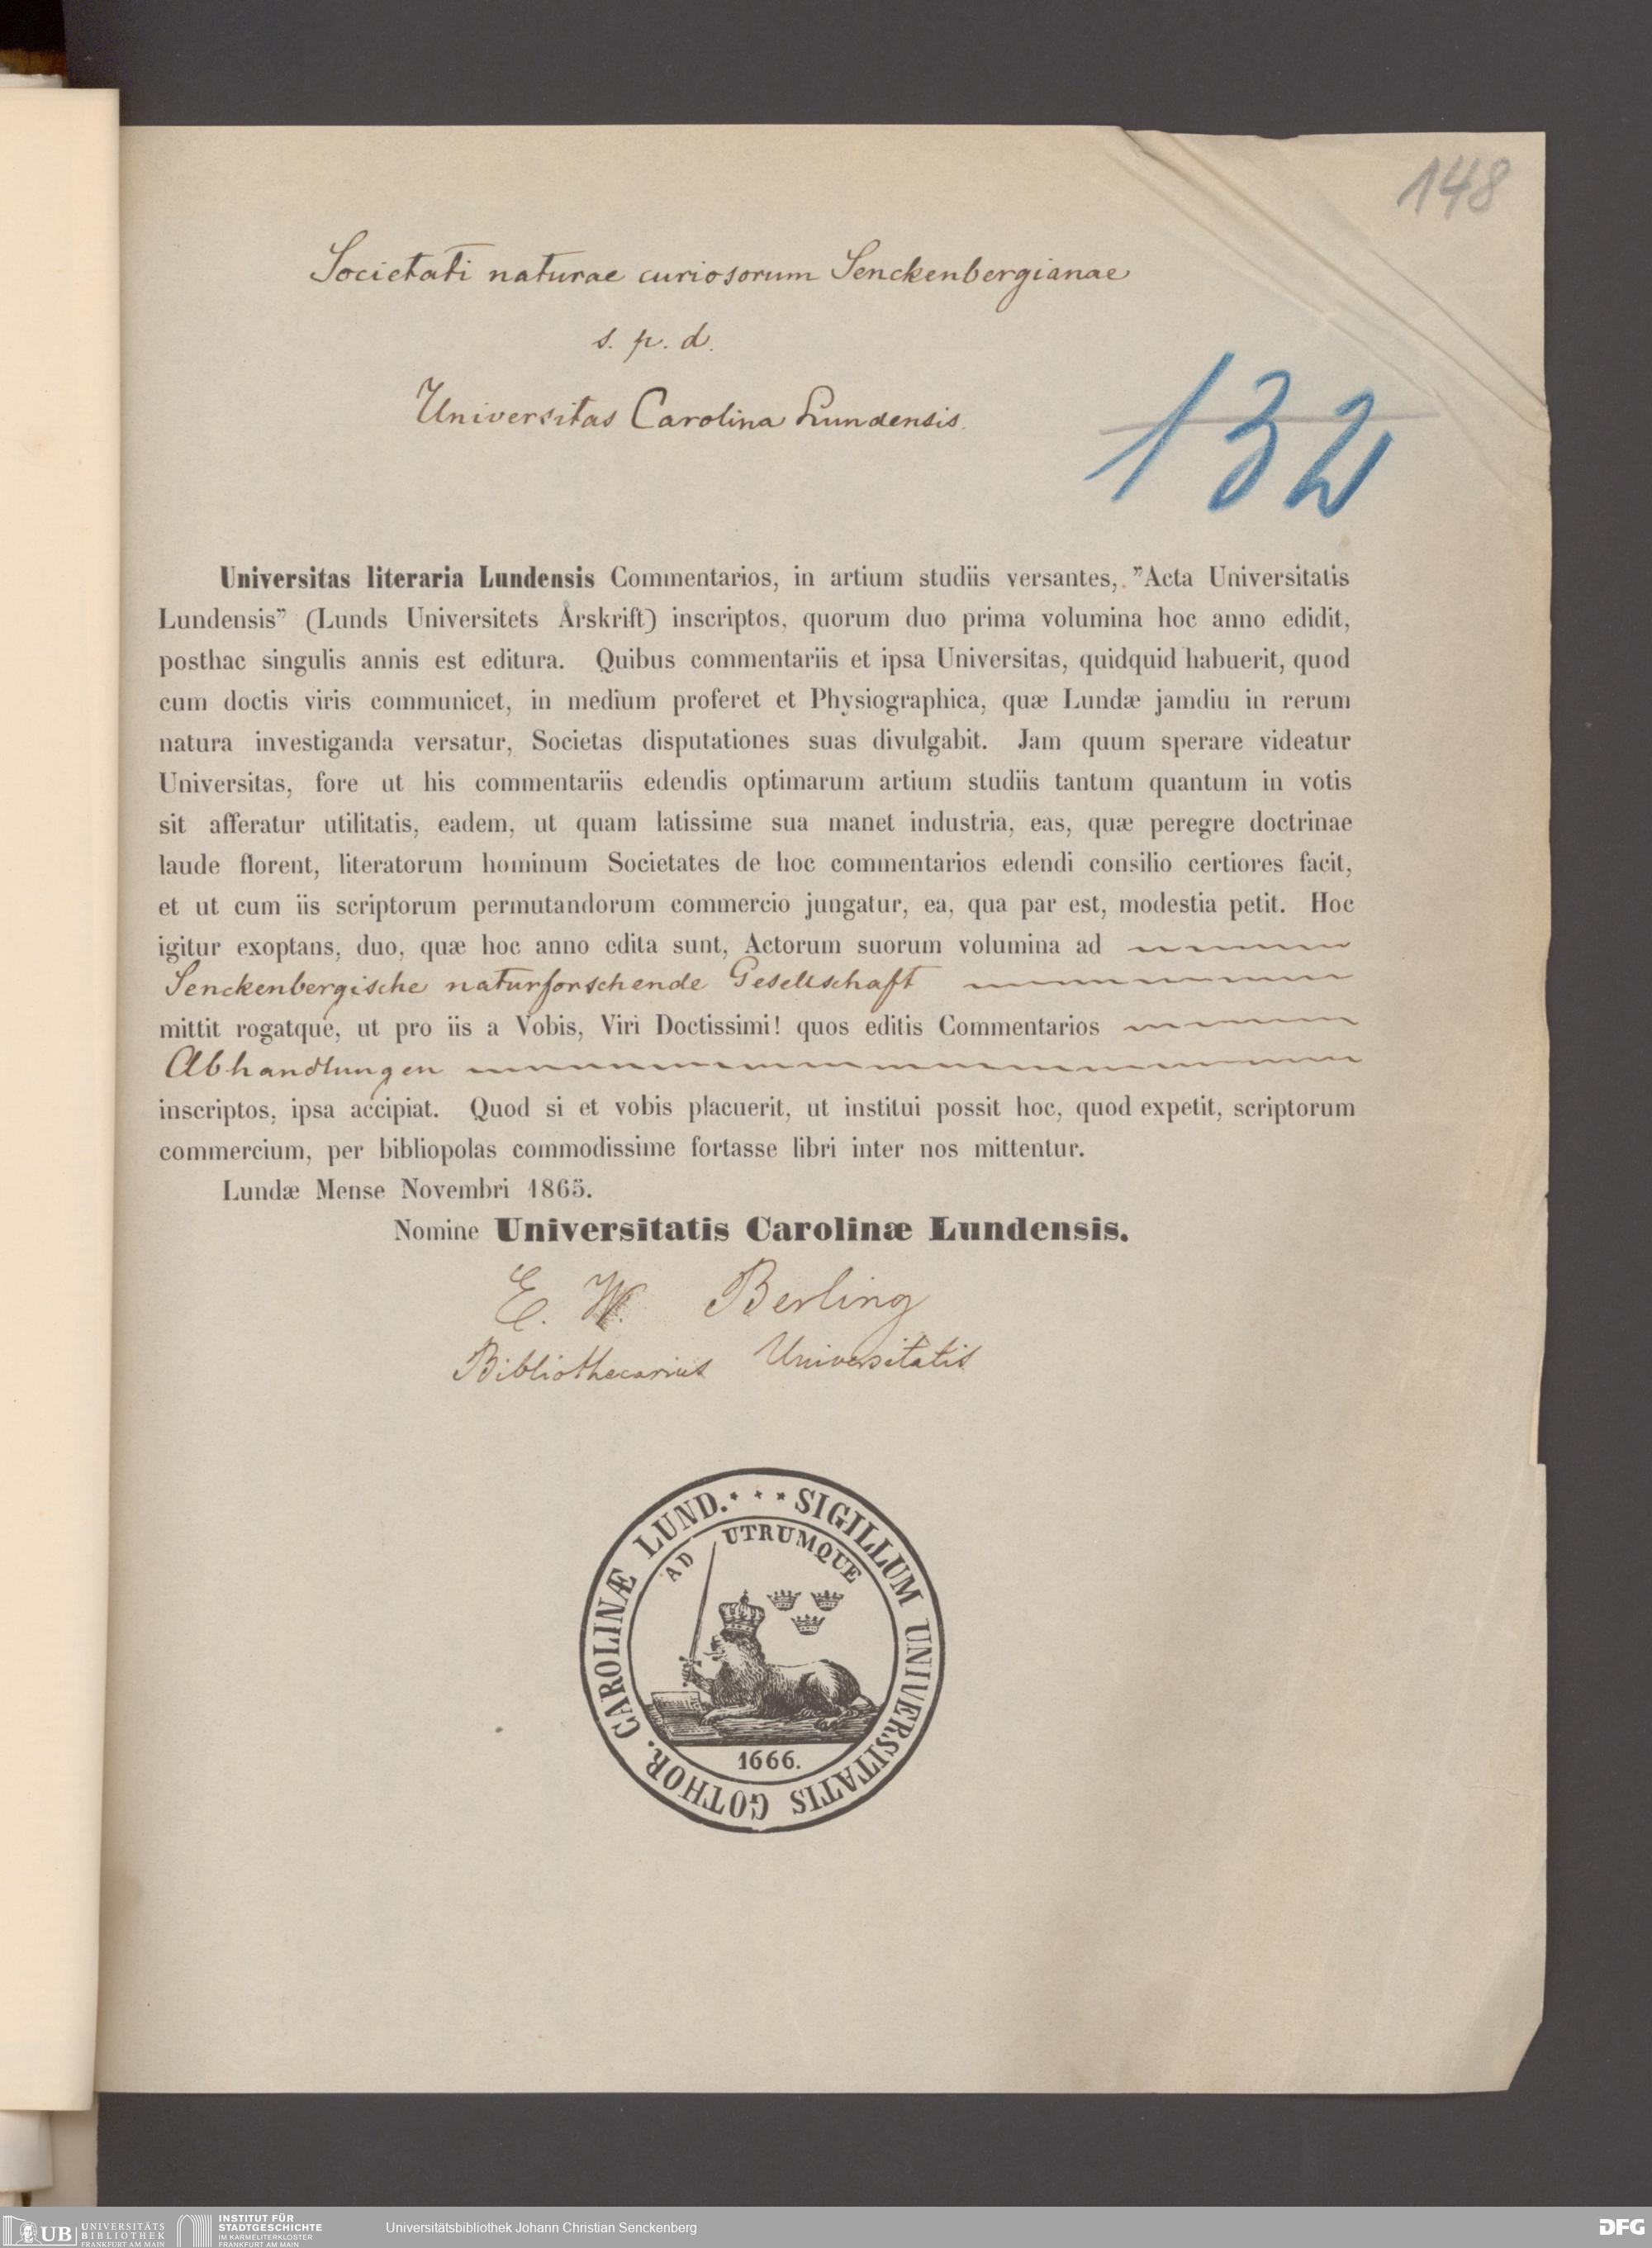 148
Societati naturae curiosorum Senckenbergianae
s. p. d.
Universitas Carolina Lundensis.
132
Universitas literaria Lundensis Commentarios, in artium studiis versantes, ”Acta Universitatis
Lundensis” (Lunds Universitets Årskrift) inscriptos, quorum duo prima volumina hoc anno edidit,
posthac singulis annis est editura. Quibus commentariis et ipsa Universitas, quidquid habuerit, quod
cum doctis viris communicet, in medium proferet et Physiographica, quæ Lundæ jamdiu in rerum
natura investiganda versatur, Societas disputationes suas divulgabit. Jam quum sperare videatur
Universitas, fore ut his commentariis edendis optimarum artium studiis tantum quantum in votis
sit afferatur utilitatis, eadem, ut quam latissime sua manet industria, eas, quæ peregre doctrinae
laude florent, literatorum hominum Societates de hoc commentarios edendi consilio certiores facit,
et ut cum iis scriptorum permutandorum commercio jungatur, ea, qua par est, modestia petit. Hoc
igitur exoptans, duo, quæ hoc anno edita sunt, Actorum suorum volumina ad
Senckenbergische naturforschende Gesellschaft
mittit rogatque, ut pro iis a Vobis, Viri Doctissimi! quos editis Commentarios
Abhandlungen
inscriptos, ipsa accipiat. Quod si et vobis placuerit, ut institui possit hoc, quod expetit, scriptorum
commercium, per bibliopolas commodissime fortasse libri inter nos mittentur.
Lundæ Mense Novembri 1865.
Nomine Universitatis Carolinæ Lundensis.
E. W. Berling
Bibliothecarius Universitatis
SIGILLUM UNIVERSITATIS GOTHOR. CAROLINÆ LUND.
AD UTRUMQUE
1666.
UB UNIVERSITÄTS
BIBLIOTHEK
FRANKFURT AM MAIN
INSTITUT FÜR
STADTGESCHICHTE
IM KARMELITERKLOSTER
FRANKFURT AM MAIN
Universitätsbibliothek Johann Christian Senckenberg
DFG